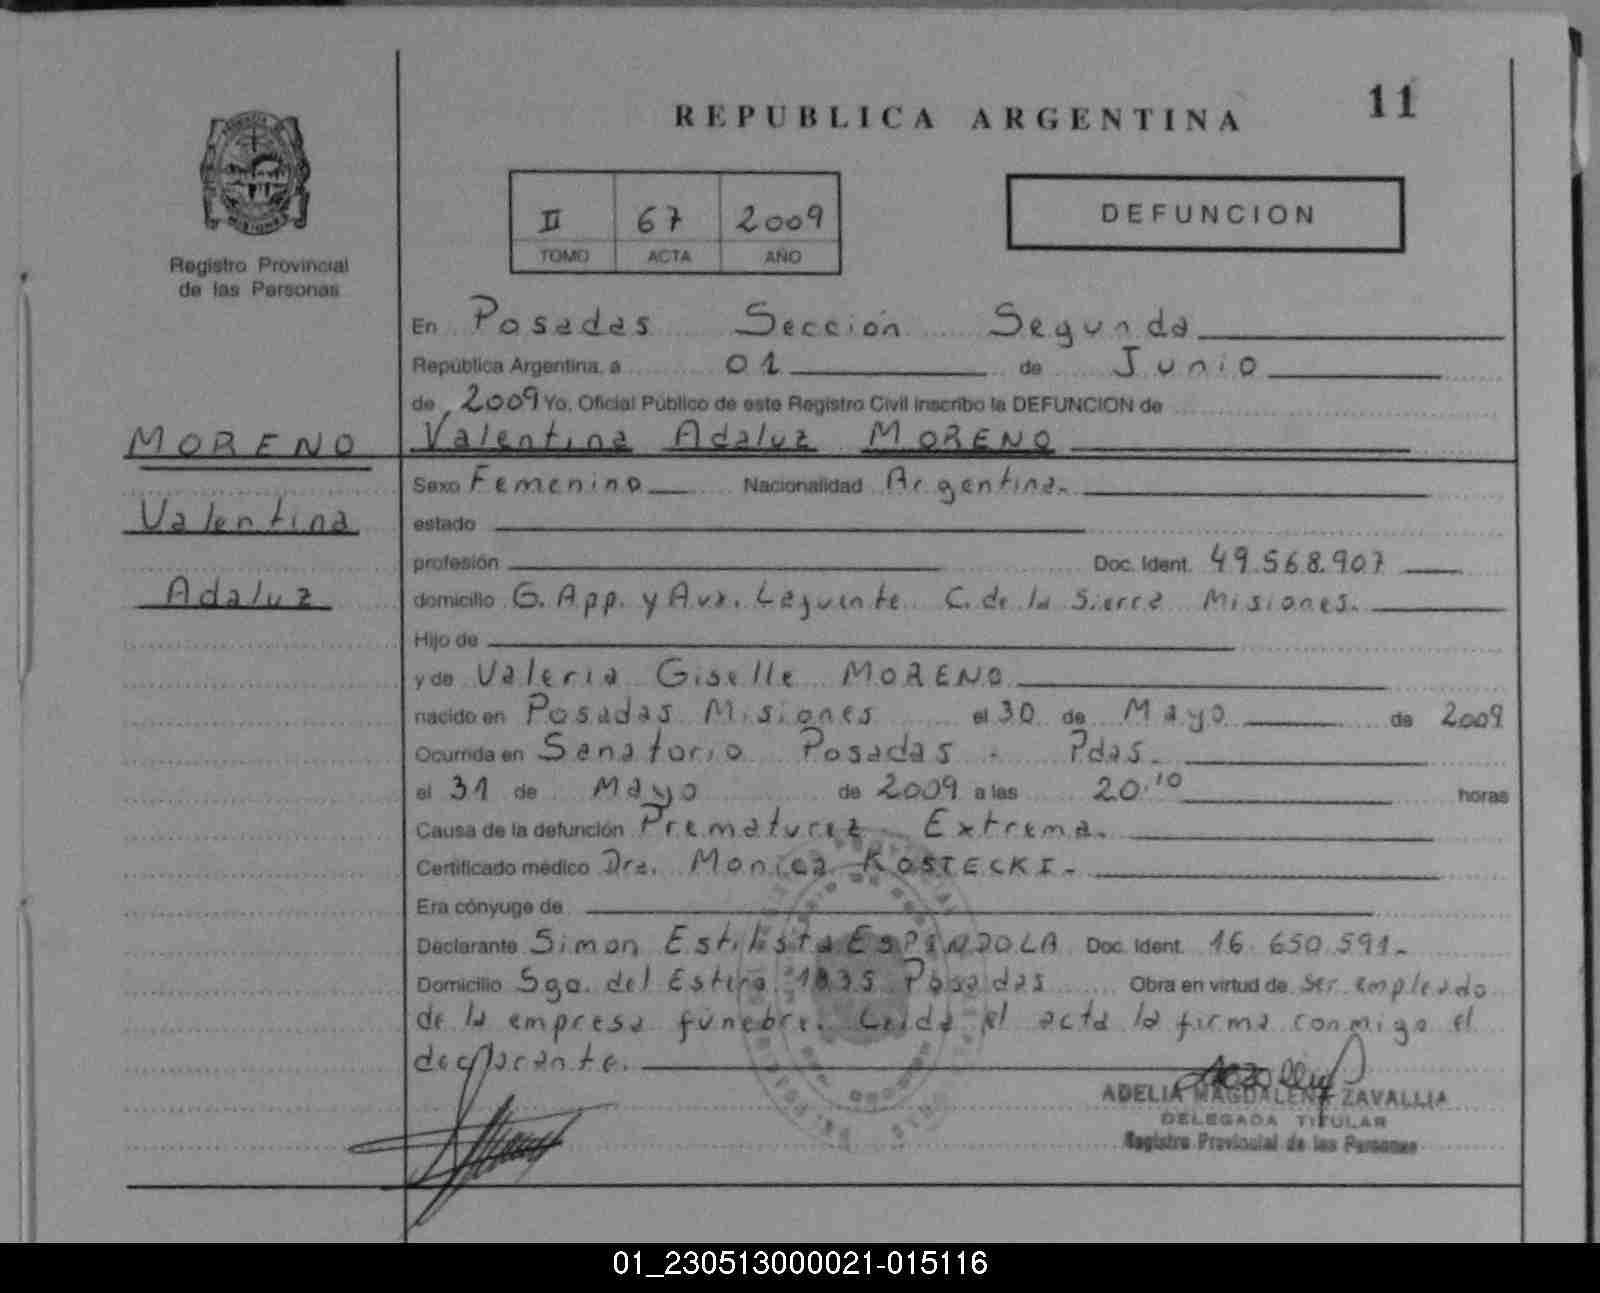 REPUBLICA ARGENTINA
11
II 67 2009
TOMO ACTA AÑO
DEFUNCION
Registro Provincial
de las Personas
En Posadas Sección Segunda
República Argentina, a 01 de Junio
de 2009 Yo, Oficial Público de este Registro Civil inscribo la DEFUNCION de
MORENO
Valentina Adaluz MORENO
Sexo Femenino Nacionalidad Argentina.
Valentina
estado
profesión Doc. Ident. 49.568.907
Adaluz
domicilio G. App. y Avx. Laguente C. de la Sierra Misiones.
Hijo de
y de Valeria Giselle MORENO
nacido en Posadas Misiones el 30 de Mayo de 2009
Ocurrida en Sanatorio Posadas - Pdas.
el 31 de Mayo de 2009 a las 20,10 horas
Causa de la defunción Prematurez Extrema.
Certificado médico Dra. Monica KOSTECKI.-
Era cónyuge de
Declarante Simon Estilista ESPINDOLA Doc. Ident. 16.650.591.-
Domicilio Sgo. del Estero 1835 Posadas Obra en virtud de ser empleado
de la empresa fúnebre. Leida el acta la firma conmigo el
declarante.
ADELIA MAGDALENA ZAVALLIA
DELEGADA TITULAR
Registro Provincial de las Personas
01_230513000021-015116